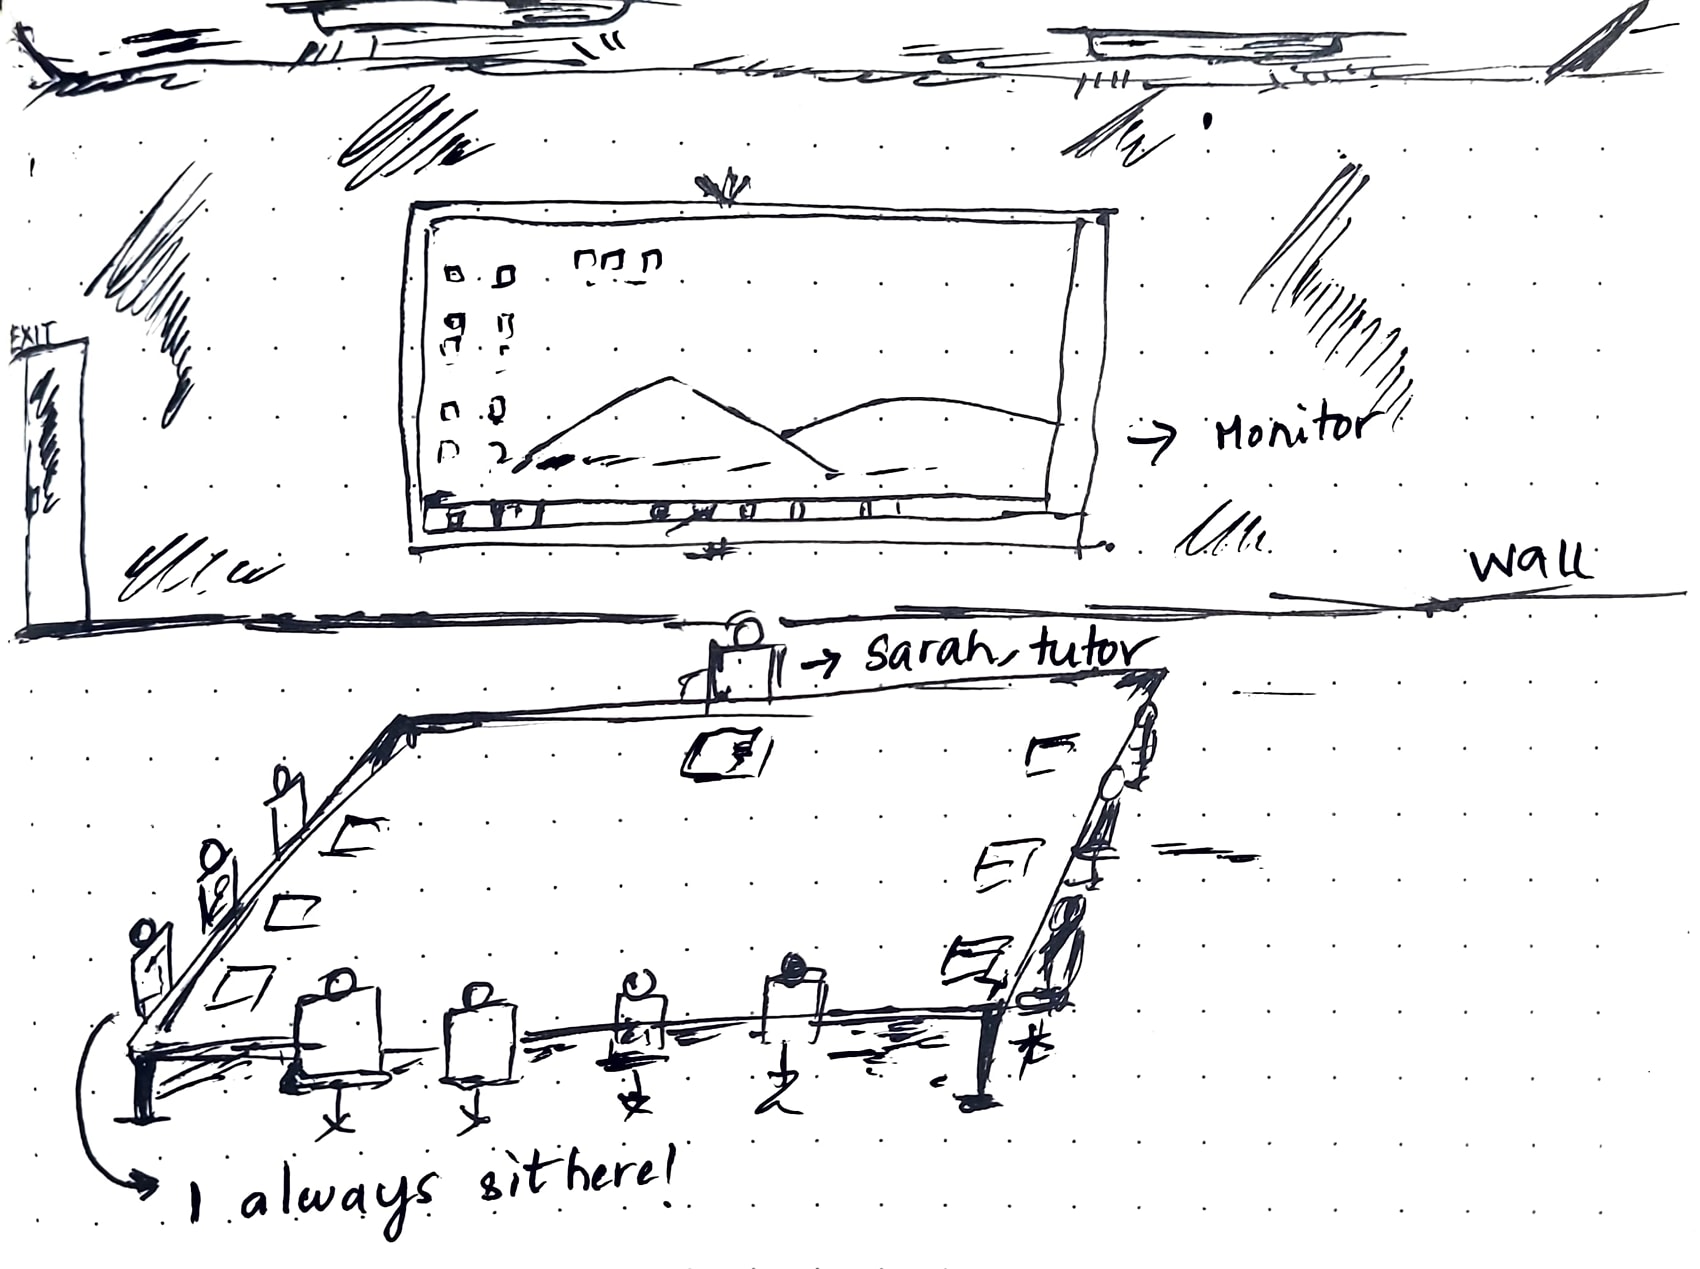 EXIT
→ Monitor
Wall
→ Sarah, tutor
I always sit here!